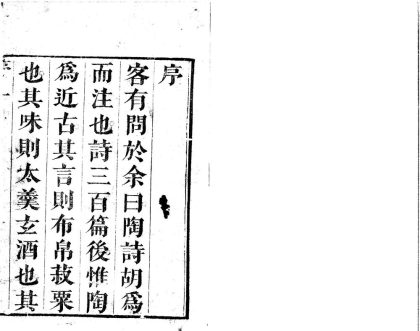 序
客有問於余曰陶詩胡爲
而注也詩三百篇後惟陶
爲近古其言則布帛菽粟
也其味則太羹玄酒也其